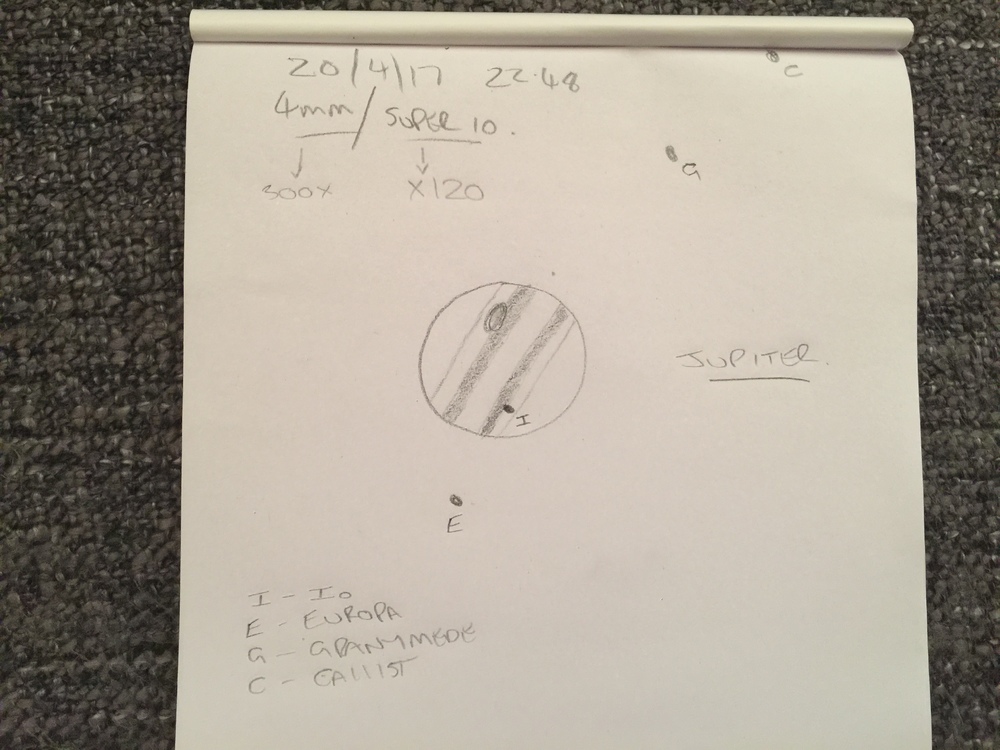 20/4/17 22.48
C
4mm/SUPER 10.
G
300X X120
JUPITER.
I
E
I - Io
E - EUROPA
G - GRANYMEDE
C - CALLIST